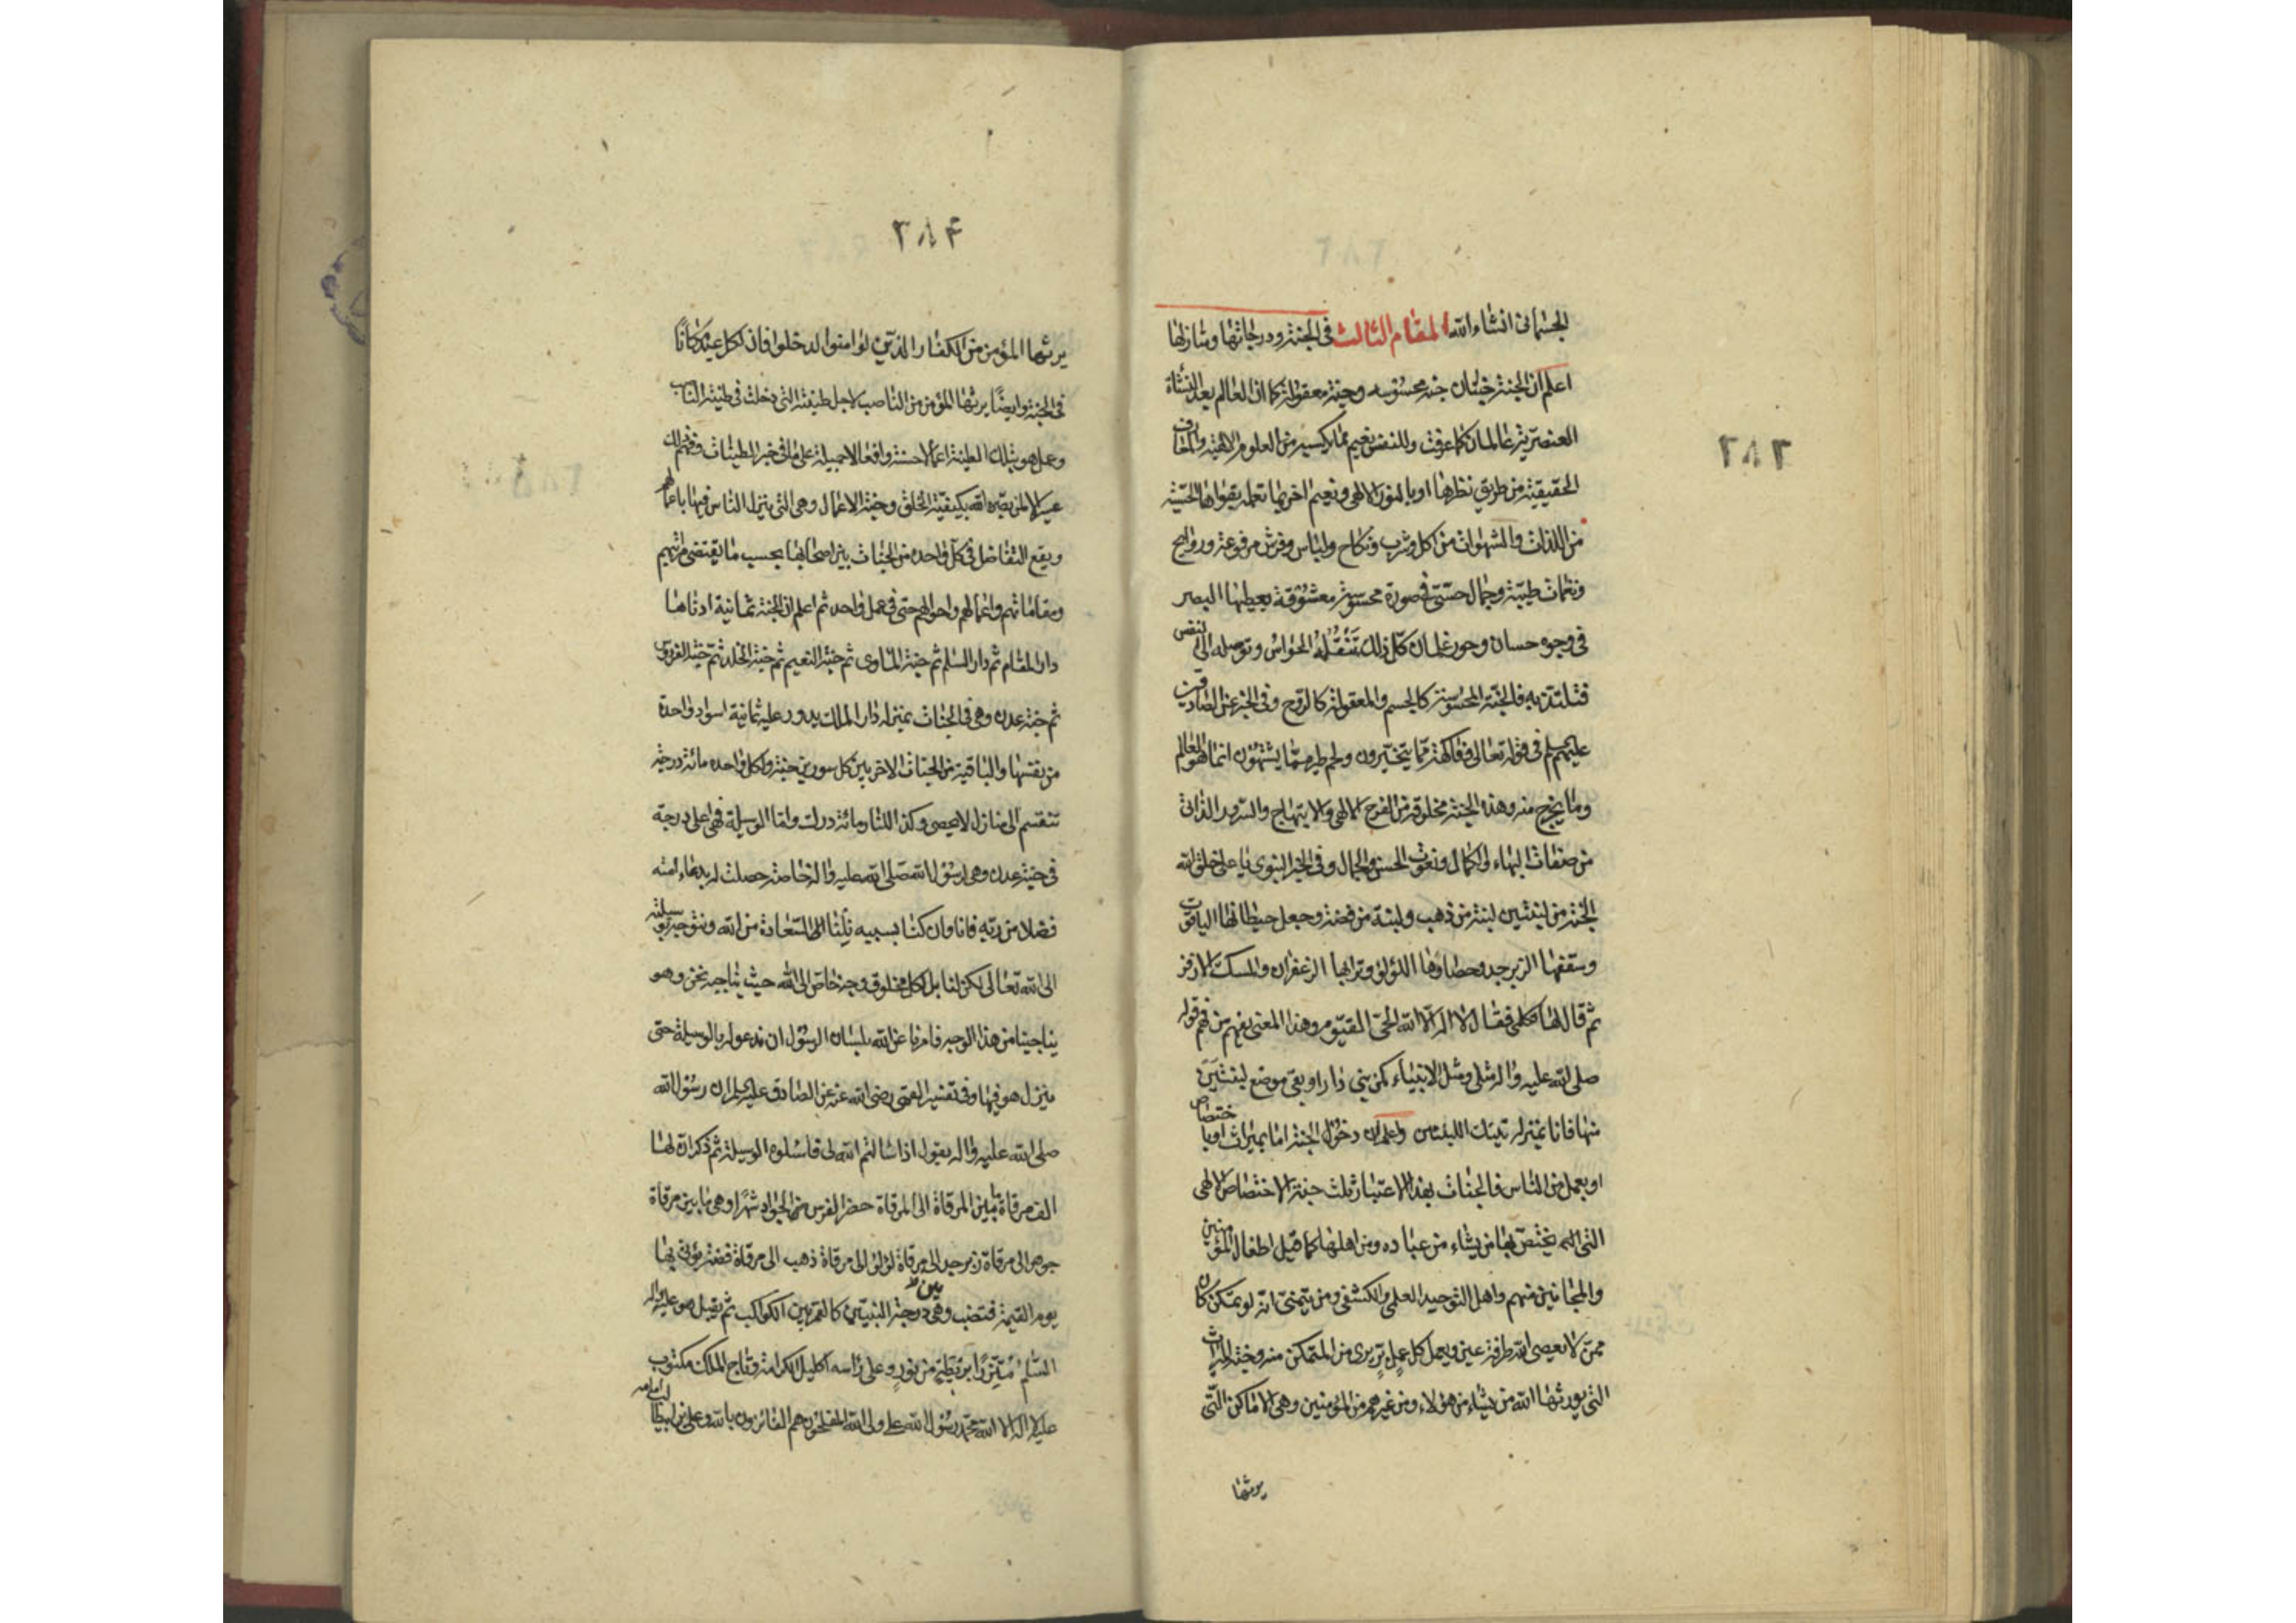 ٣٨٣
الجسمانى انشاء الله المقام الثالث فى الجنة ودرجاتها ومنازلها
اعلم ان الجنة جنتان جنة محسوسه وجنة معقولة كما ان العالم بعد النشأة
العنصرية عالمان كما عرفت وللنفس نعيم مما تكسبه من العلوم الالهية والمعارف
الحقيقية من طريق نظرها او بالنور الالهى ونعيم اخر بما تحمله بقواها الحسّية
من اللذات والشهوات من اكل وشرب ونكاح ولباس وفرش مرفوعة وروايح
ونغمات طيّبة وجمال حسّىّ فى صورة محسوسة معشوقة يعطيها البصر
فى وجوه حسان وحور غلمان كل ذلك تَنْقُلهُ الحواس وتوصله الى النفس
فتلتذ به فالجنّة المحسوسة كالجسم والمعقولة كالروح وفى الخبر عن الصادقين
عليهم سلم فى قوله تعالى وفاكهة ممّا يتخيّرون ولحم طير ممّا يشتهون انما هو العالم
وما يخرج منه وهذه الجنة مخلوقة من الفرح الالهى والابتهاج والسرور الذاتى
من صفات البهاء والكمال ونعوت الحسن والجمال وفى الخبر النبوى يا على خلق الله
الجنة من لبنتين لبنة من ذهب ولبنة من فضة وجعل حيطانها الياقوت
وسقفها الزبرجد وحصاوها اللؤلؤ وترابها الزعفران والمسك الازفر
ثم قال لها تكلمى فقال لا اله الّا الله الحىّ القيّوم وهذا المعنى يفهم من فهم قوله
صلى الله عليه واله مثلى ومثل الانبياء كمن بنى دارا وبقى موضع لبنتين
منها فانا بمنزله تينك اللبنتين واعلم ان دخول الجنة اما بميراث او باختصاص
او بعمل من الناس فالجنات بهذا الاعتبار ثلث جنة الاختصاص الالهى
التى الله يختصّ بها من يشاء من عباده ومن اهلها كما قيل اطفال المؤمنين
والمجانين منهم واهل التوحيد العلمى والكشفى ومن يتمنىّ انه لو تمكن كان
ممن لا يعصى الله طرفة عين ويعمل كل عمل برّ يرى من المتمكن منه وجنة الميراث
التى يورثها الله من يشاء من هؤلاء ومن غيرهم من المؤمنين وهى الاماكن التى
يرثها
٣٨۴
يرثها المؤمن من الكفار الذين لو امنوا لدخلوا فان لكل عبد مكاناً
فى الجنة وايضًا يرثها المؤمن من الناصب لاجل طينته التى دخلت فى طينة الناصب
وعمل هو بتلك الطينة اعمالا حسنة وافعالا جميلة على ما فى خبر الطينات وفهم ذلك
عسير الا لمن بصّره الله بكيفيّة الخلق وجنة الاعمال وهى التى ينزل الناس فيها باعمالهم
ويقع التفاضل فى كل واحده من الجنات بين اصحابها بحسب ما يقتضى مراتبهم
ومقاماتهم واعمالهم واحوالهم حتى فى عمل واحد ثم اعلم ان الجنة ثمانية ادناها
دار المقام ثم دار السلم ثم جنة المأوى ثم جنة النعيم ثم جنة الخلد ثم جنة الفردوس
ثم جنة عدن وهى فى الجنات بمنزله دار الملك يدور عليه ثمانية اسوار واحدة
من نفسها والباقية من الجنات الاخر بين كل سورين جنة ولكل واحده مائة درجة
تنقسم الى منازل لا يحصى وكذا للنار مائة درك واما الوسيلة فهى اعلى درجة
فى جنة عدن وهى لرسول الله صلى الله عليه واله خاصة حصلت له بدعاء امته
فضلا من ربّه فانا وان كنا بسببه نِلْنَا الى السّعادة من الله ونتوجه بوسيلته
الى الله تعالى لكن لنا بل لكل مخلوق وجه خاص الى الله حيث يناجيه نحن وهو
يناجينا من هذا الوجه فامرنا عن الله بلسان الرسول ان ندعو له بالوسيلة حتى
ينزل هو فيها وفى تفسير القمى رضى الله عنه عن الصادق عليه سلم ان رسول الله
صلى الله عليه واله يقول اذا سالتم الله لى فاسئلوه الوسيلة ثم ذكر ان لها
الف مرقاة ما بين المرقاة الى المرقاة حضر الفرس الجواد شهرًا وهى ما بين مرقاة
جوهر الى مرقاة زبرجد الى مرقاة لؤلؤ الى مرقاة ذهب الى مرقاة فضة يؤتى بها
يوم القيمة فتنصب وهى بين درجة النبيّين كالقمر بين الكواكب ثم يقبل هو عليه واله
السّلم مُتّزرًا بريطة من نور وعلى راسه اكليل الكرامة وتاج الملك مكتوب
عليه لا اله الا الله محمد رسول الله على ولى الله المفلحون هم الفائزون بالله وعلى بن ابيطالب امامه